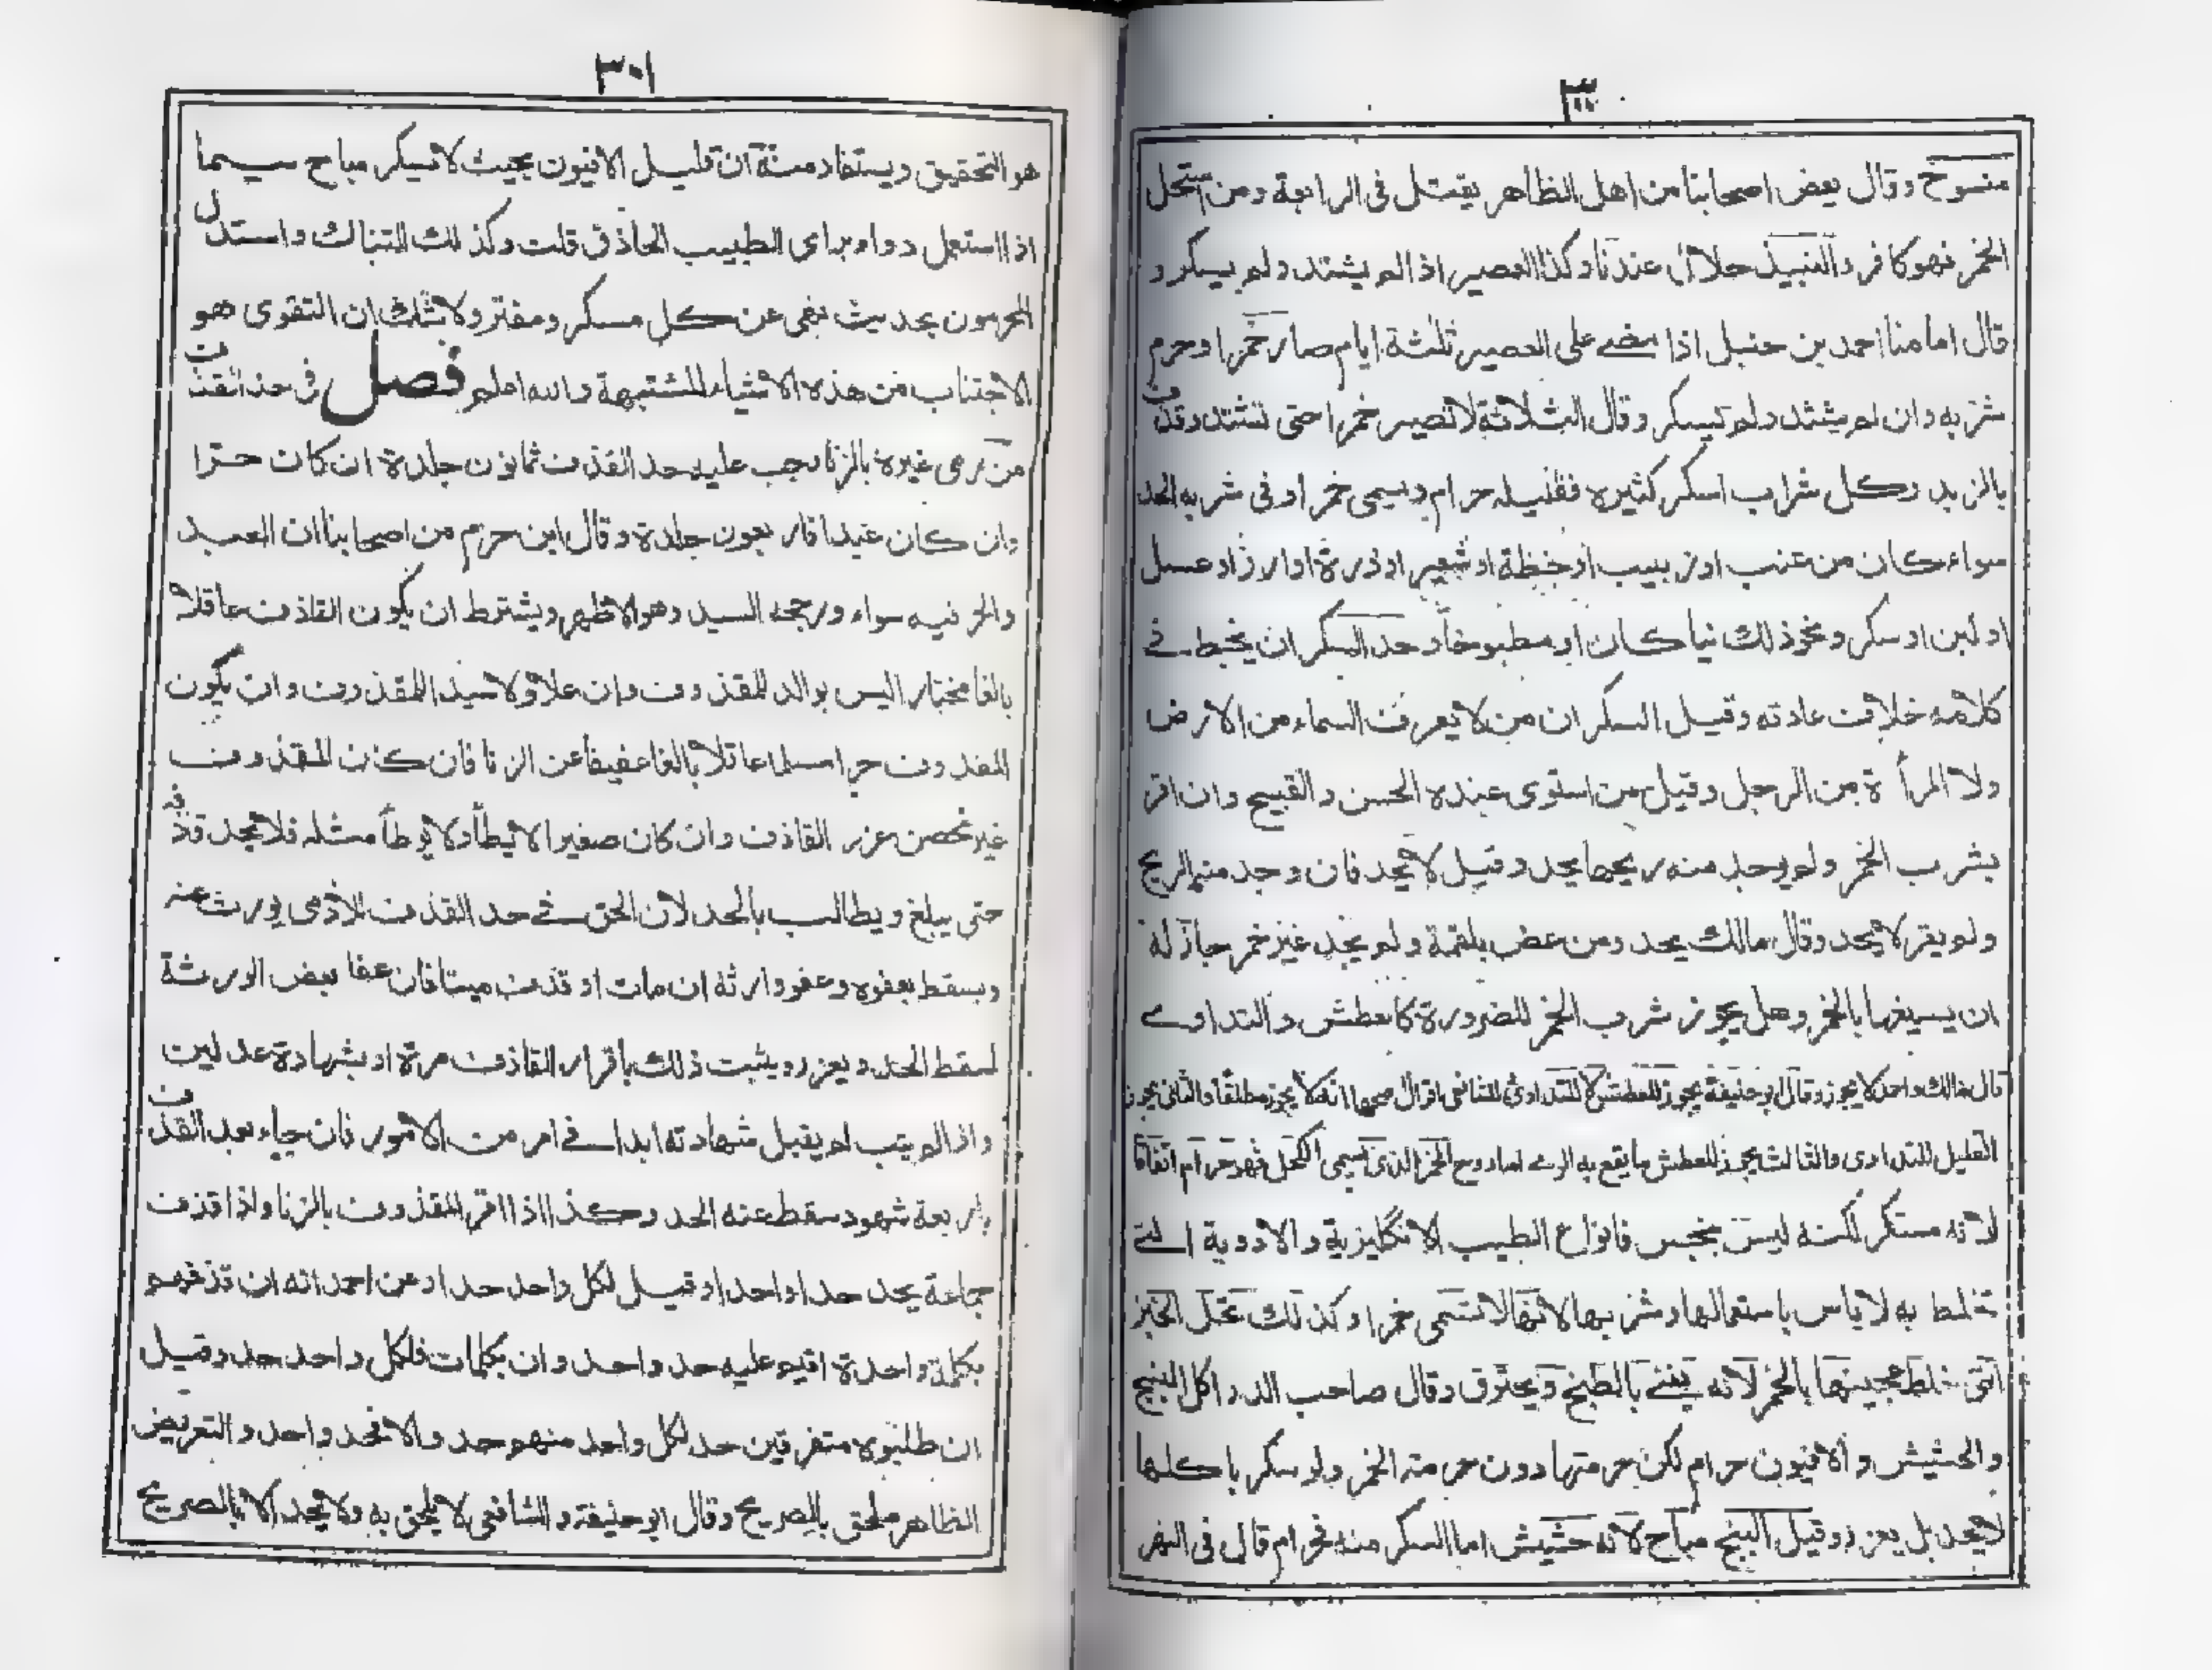 ٣٠٠
منسوخ وقال بعض اصحابنا من اهل الظاهر يقتل فى الرابعة ومن استحل
الخمر فهو كافر والنبيذ حلال عندنا وكذا العصير اذا لم يشتد ولم يسكر و
قال امامنا احمد بن حنبل اذا مضے على العصير ثلثة ايام صار خمرا وحرم
شربه وان لم يشتد ولم يسكر وقال الثلاثة لا تصير خمرا حتى تشتد وتقذف
بالزبد وكل شراب اسكر كثيره فقليله حرام ويسمى خمرا وفى شربه الحد
سواء كان من عنب او زبيب او حنطة او شعير او ذرة او ارز او عسل
او لبن او سكر ونحو ذلك نيا كان او مطبوخا وحد السكر ان يخبط فے
كلامه خلاف عادته وقيل السكران من لا يعرف السماء من الارض
ولا المرأة من الرجل وقيل من استوى عنده الحسن والقبيح وان اقر
بشرب الخمر ولم يوجد منه ريحها يحد وقيل لا يحد فان وجد منه الريح
ولم يقر لا يحد وقال مالك يحد ومن غص بلقمة ولم يجد غير خمر جاز له
ان يسيغها بالخمر وهل يجوز شرب الخمر للضرورة كالعطش والتداوے
قال مالك واحمد لا يجوز وقال ابو حنيفة يجوز للعطش لا للتداوى للشافعى اقوال اصحها انه لا يجوز مطلقا والثانى يجوز
القليل للتداوى والثالث يجوز للعطش ما يقع به الرے اما روح الخمر الذى يسمى الكحل فهو حرام اتفاقا
لانه مسكر لكنه ليس بنجس فانواع الطبيب الانگليزية والادوية التے
تخلط به لا باس باستعمالها وشربها لانها لا تسمى خمرا وكذلك نحل الخبز
التى خلط عجينها بالخمر لانه يفنے بالطبخ ويحترق وقال صاحب الدر اكل البنج
والحشيش والافيون حرام لكن حرمتها دون حرمة الخمر ولو سكر باكلها
لا يحد بل يعزر وقيل البنج مباح لانه حشيش اما السكر منه فحرام قال فى النهر
٣٠١
هو التحقيق ويستفاد منه ان قليل الافيون بحيث لا يسكر مباح سيما
اذا استعمل دواء براى الطبيب الحاذق قلت وكذلك التنباك واستدل
المحرمون بحديث نهى عن كل مسكر ومفتر ولا شك ان التقوى هو
الاجتناب من هذه الاشياء المشتبهة والله اعلم فصل فى حد القذف
من رمى غيره بالزنا وجب عليه حد القذف ثمانون جلدة ان كان حرا
وان كان عبدا فاربعون جلدة وقال ابن حزم من اصحابنا ان العبد
والحر فيه سواء ورجحه السيد وهو الاظهر ويشترط ان يكون القاذف عاقلا
بالغا مختارا ليس بوالد للمقذوف وان علا ولا سيد المقذوف وان يكون
المقذوف حرا مسلما عاقلا بالغا عفيفا عن الزنا فان كان المقذوف
غير محصن عزر القاذف وان كان صغيرا لا يطأ ولا يوطأ مثله فلا يحد قاذفه
حتى يبلغ ويطالب بالحد لان الحق فے حد القذف للآدمى يورث عنه
ويسقط بعفوه وعفو وارثه ان مات او قذف ميتا فان عفا بعض الورثة
لسقط الحد ويعزر ويثبت ذلك باقرار القاذف مرة او بشهادة عدلين
واذا لم يتب لم يقبل شهادته ابدا فے امر من الامور فان جاء بعد القذف
باربعة شهود سقط عنه الحد وكذا اذا اقر المقذوف بالزنا واذا قذف
جماعة يحد حدا واحدا وقيل لكل واحد حد وعن احمد انه ان قذفهم
بكلمة واحدة اقيم عليه حد واحد وان بكلمات فلكل واحد حد وقيل
ان طلبوه متفرقين حد لكل واحد منهم حد والا فحد واحد والتعريض
الظاهر ملحق بالصريح وقال ابو حنيفة والشافعى لا يلحق به ولا يحد الا بالصريح